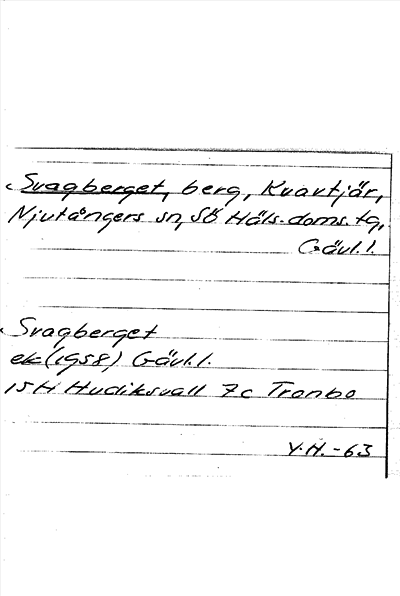 Svagberget, berg, Kvavtjär,
Njutångers sn, Sö Häls. doms. tg,
Gävl. l.
Svagberget
ek (1958) Gävl. l.
15H Hudiksvall 7c Tronbo
Y.H. -63